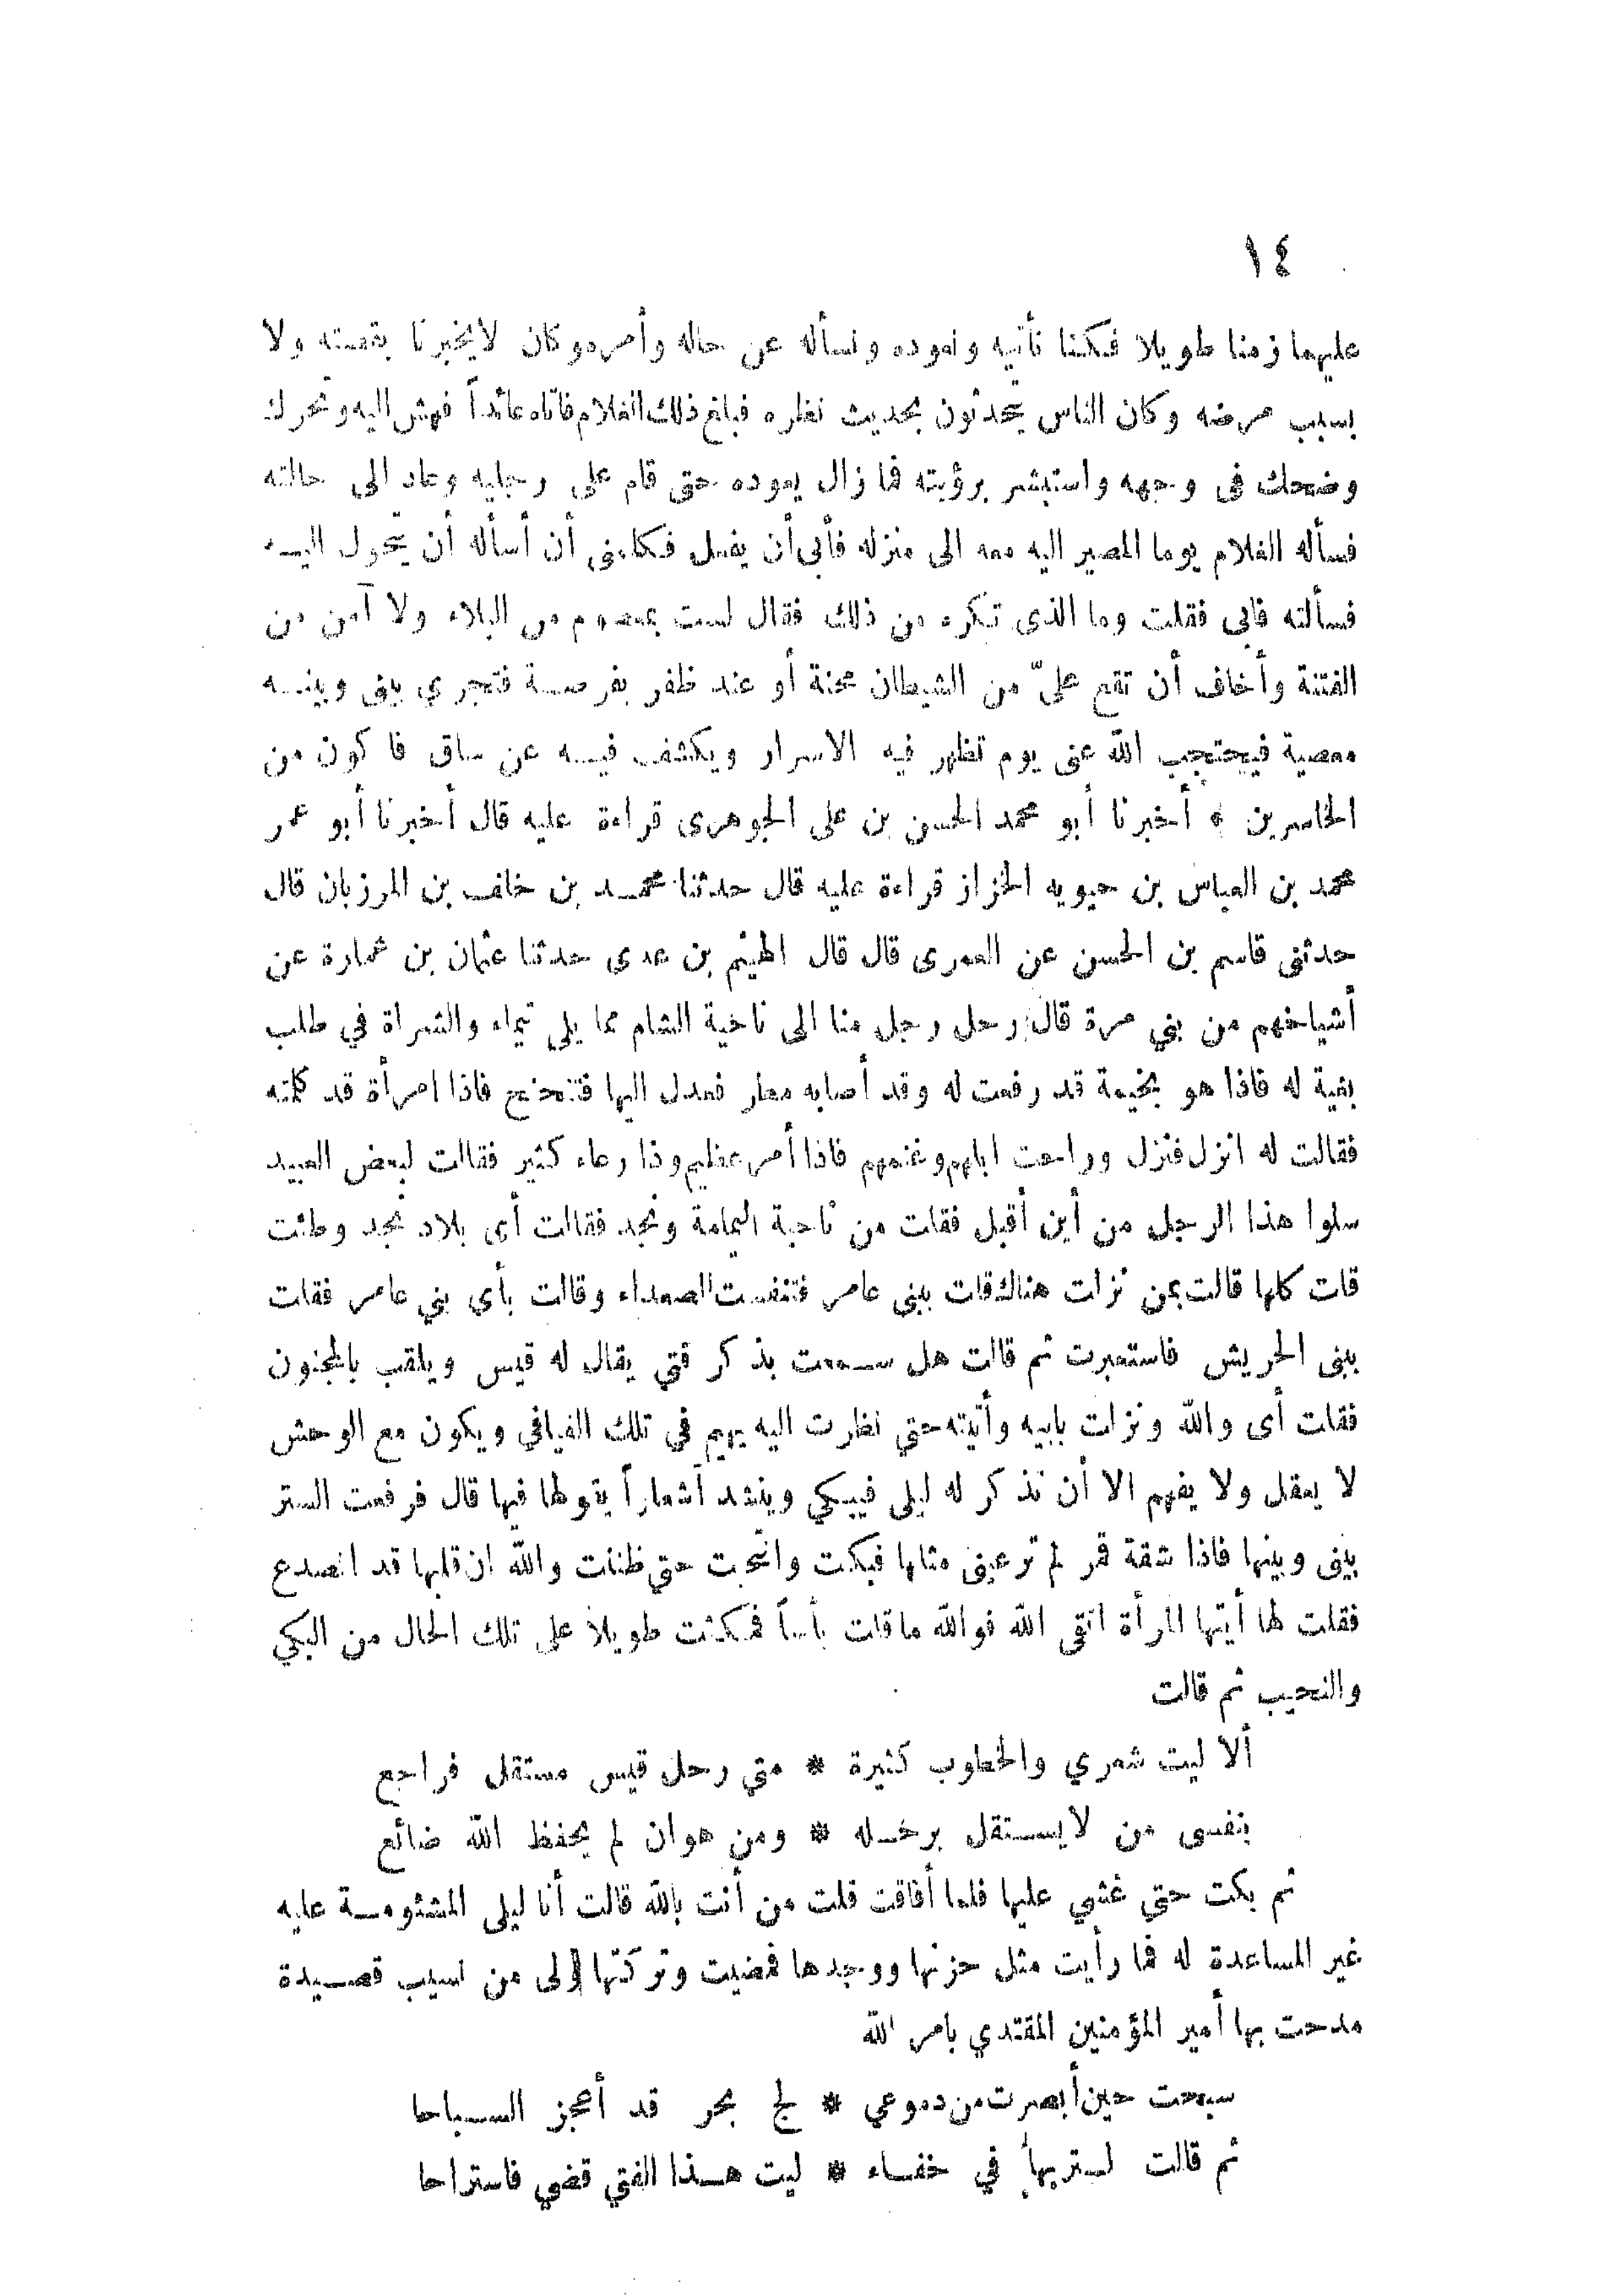 ١٤
عليهما زمنا طويلا فكنا نأتيه ونعوده ونسأله عن حاله وأمره وكان لايخبرنا بقصته ولا
بسبب مرضه وكان الناس يتحدثون بحديث نظره فبلغ ذلك الغلام فاتاه عائداً فهش اليه وتحرك
وضحك فى وجهه واستبشر برؤيته فما زال يعوده حتى قام على رجليه وعاد الى حالته
فسأله الغلام يوما المصير اليه معه الى منزله فأبى أن يفعل فكلمنى أن أسأله أن يتحول اليه
فسألته فابى فقلت وما الذى تكره من ذلك فقال لست بمعصوم من البلاء ولا آمن من
الفتنة وأخاف أن تقع علىّ من الشيطان محنة أو عند ظفر بفرصة فتجري بينى وبينه
معصية فيحتجب الله عنى يوم تظهر فيه الاسرار ويكشف فيه عن ساق فاكون من
الخاسرين * أخبرنا أبو محمد الحسن بن على الجوهرى قراءة عليه قال أخبرنا أبو عمر
محمد بن العباس بن حيويه الخزاز قراءة عليه قال حدثنا محمد بن خلف بن المرزبان قال
حدثنى قاسم بن الحسن عن العمرى قال قال الهيثم بن عدى حدثنا عثمان بن عمارة عن
أشياخهم من بني مرة قال رحل رجل منا الى ناحية الشام مما يلي تيماء والشراة في طلب
بغية له فاذا هو بخيمة قد رفعت له وقد أصابه مطر فعدل اليها فتنحنح فاذا امرأة قد كلمته
فقالت له انزل فنزل وراحت ابلهم وغنمهم فاذا أمر عظيم وذا رعاء كثير فقالت لبعض العبيد
سلوا هذا الرجل من أين أقبل فقلت من ناحية اليمامة ونجد فقالت أى بلاد نجد وطئت
قلت كلها قالت بمن نزلت هناك قلت ببنى عامر فتنفست الصعداء وقالت بأى بني عامر فقلت
ببنى الحريش فاستعبرت ثم قالت هل سمعت بذكر فتي يقال له قيس ويلقب بالمجنون
فقلت أى والله ونزلت بابيه وأتيته حتي نظرت اليه يهيم في تلك الفيافي ويكون مع الوحش
لا يعقل ولا يفهم الا أن نذكر له ليلى فيبكي وينشد أشعاراً يقولها فيها قال فرفعت الستر
بينى وبينها فاذا شقة قمر لم تر عينى مثلها فبكت وانتحبت حتي ظننت والله ان قلبها قد انصدع
فقلت لها أيتها المرأة اتقى الله فوالله ماقلت بأساً فمكثت طويلا على تلك الحال من البكي
والنحيب ثم قالت
ألا ليت شعري والخطوب كثيرة * متي رحل قيس مستقل فراجع
بنفسى من لايستقل برحله * ومن هوان لم يحفظ الله ضائع
ثم بكت حتي غشي عليها فلما أفاقت قلت من أنت بالله قالت أنا ليلى المشئومة عليه
غير المساعدة له فما رأيت مثل حزنها ووجدها فمضيت وتركتها (ولى من نسيب قصيدة
مدحت بها أمير المؤمنين المقتدي بامر الله
سبحت حين أبصرت من دموعي * لج بحر قد أعجز السباحا
ثم قالت لتربها في خفاء * ليت هذا الفتي قضي فاستراحا